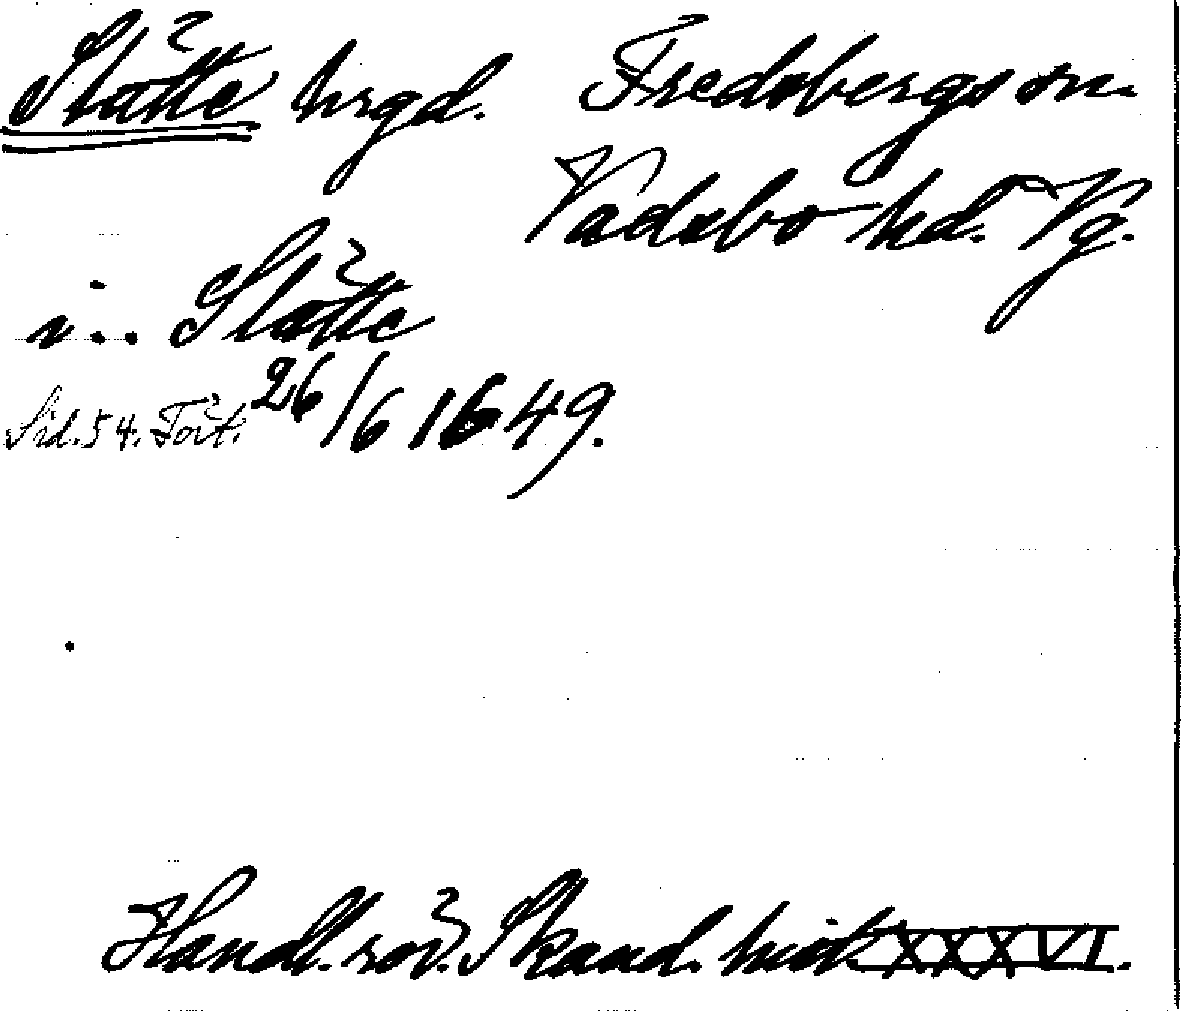 Slätte hrgd. Fredsbergs sn.
Vadsbo hd. Vg.
i.. Slätte
Sid. 54. Fört. 26/6 1649.
Handl. rör. Skand. hist. XXXVI.